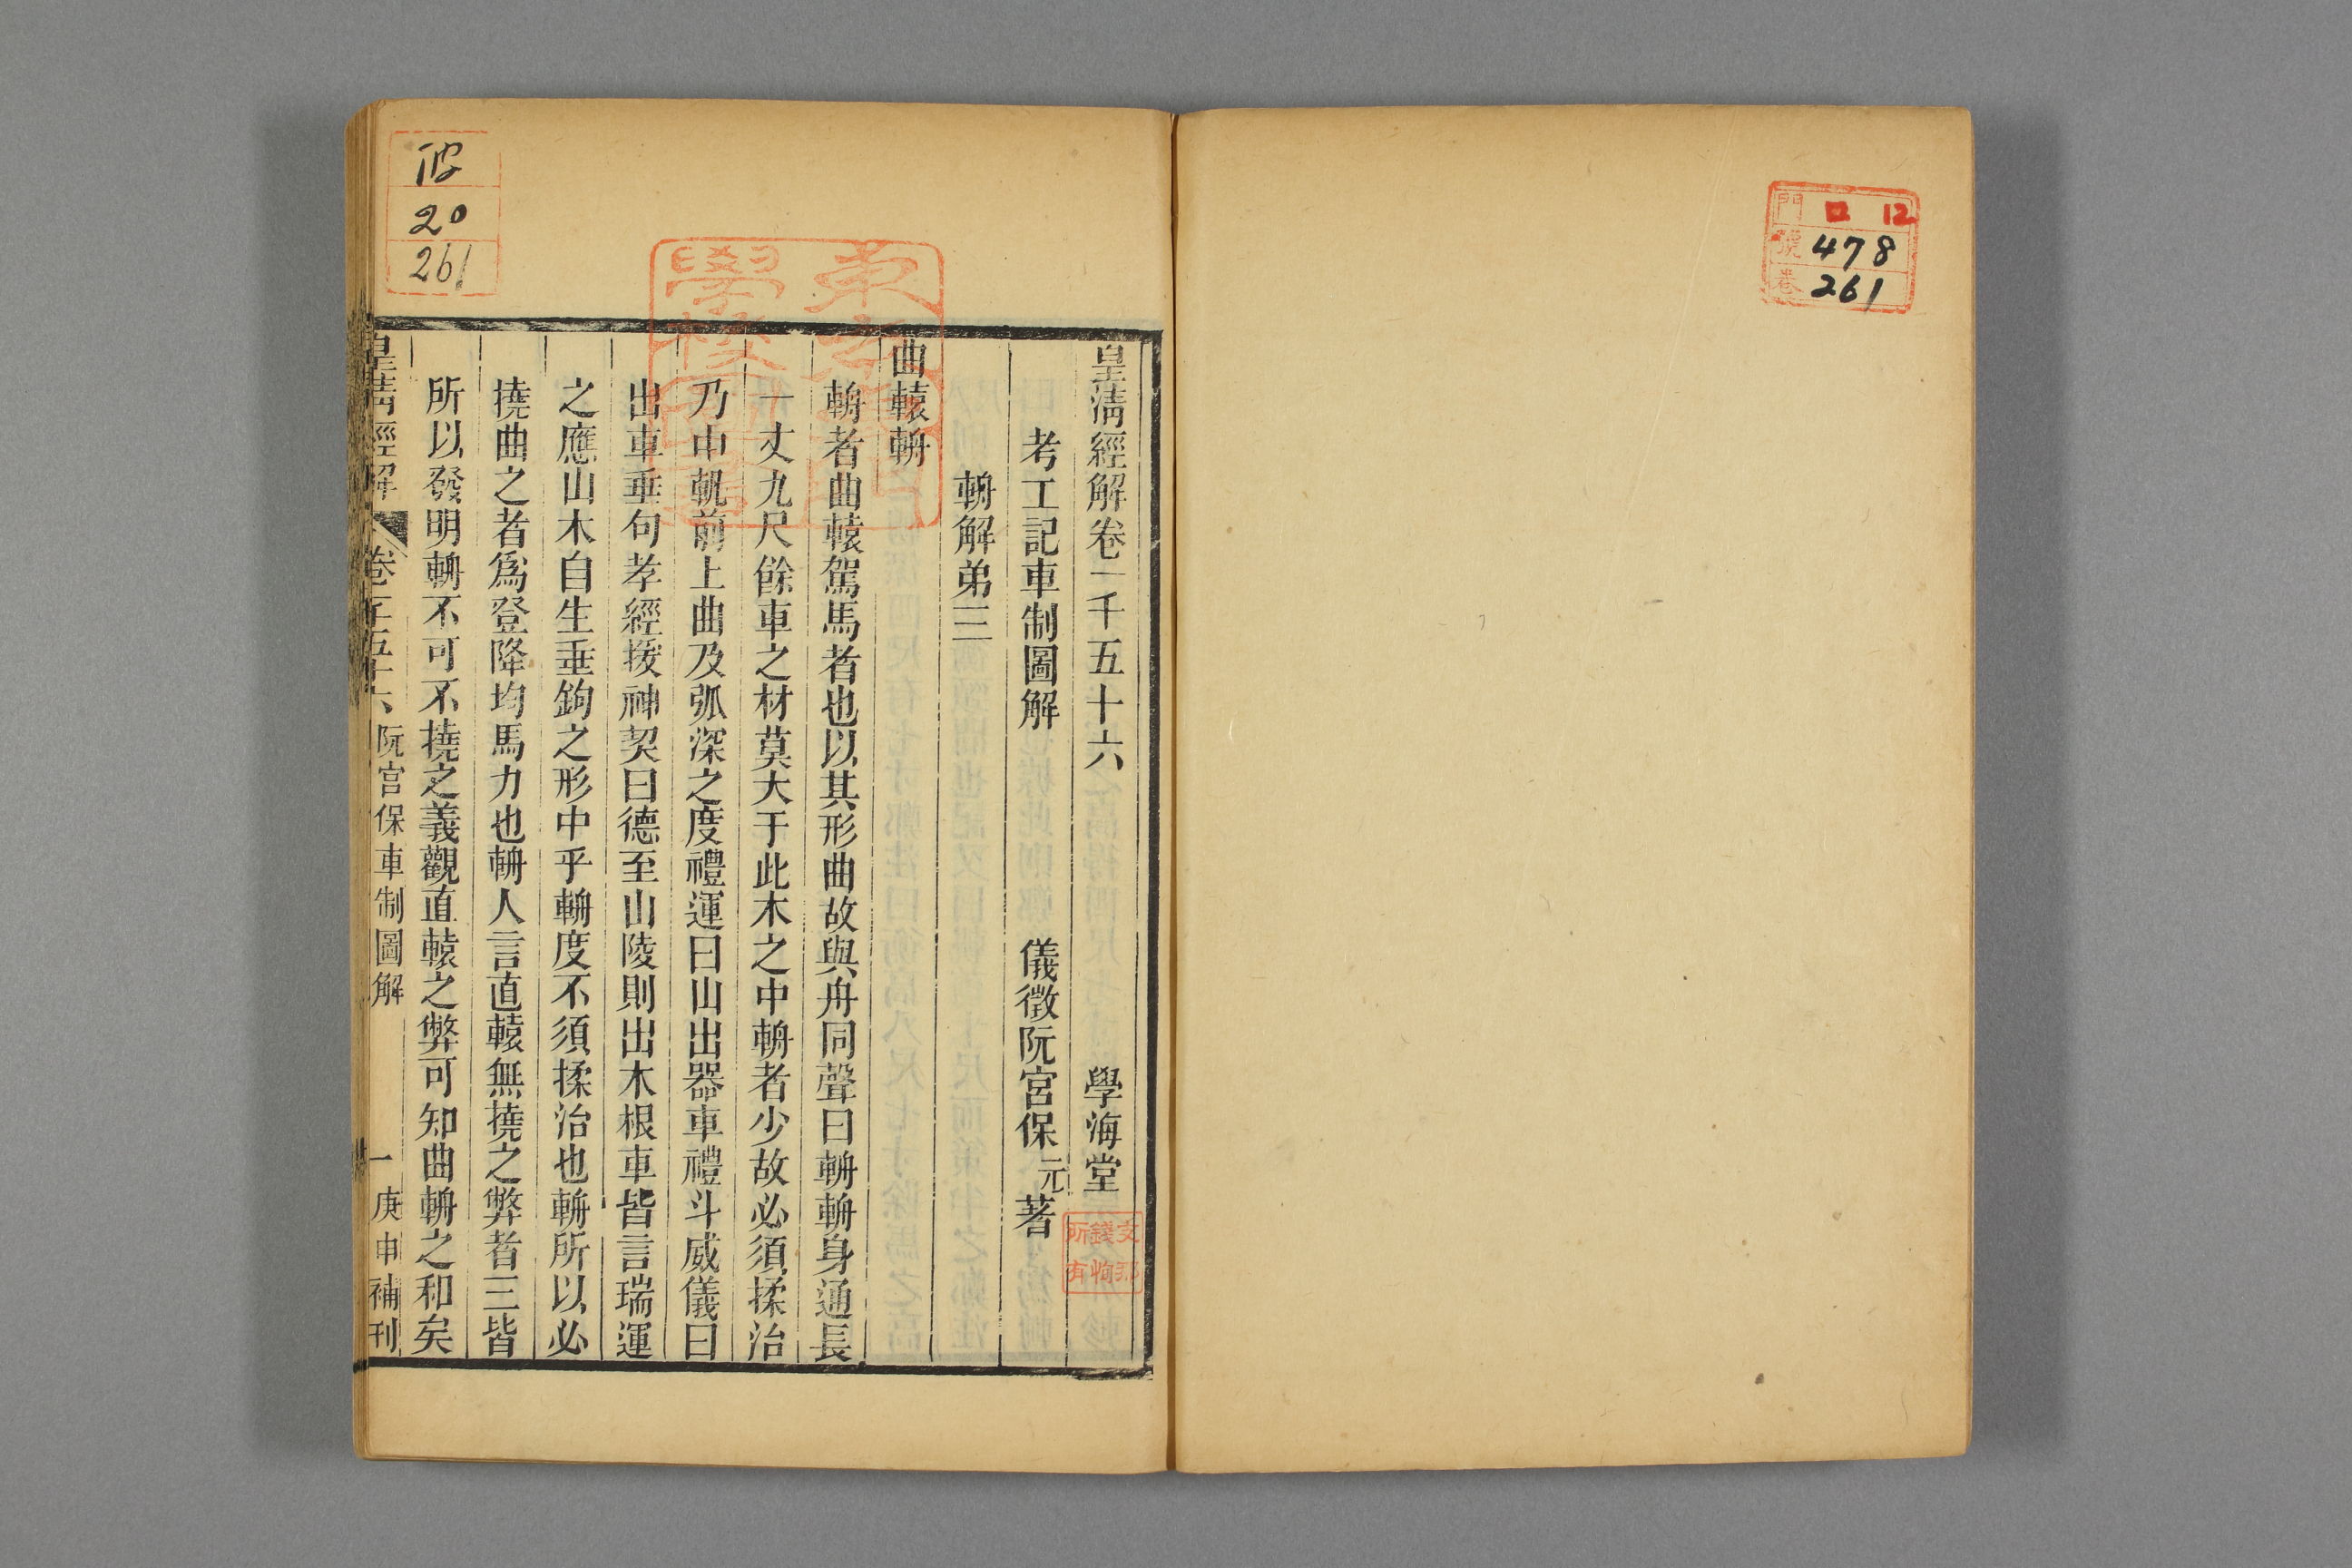 門 口 12
號 478
卷 261
皇清經解卷一千五十六
學海堂
考工記車制圖解
儀徵阮宮保元著
輈解弟三
曲轅輈
輈者曲轅駕馬者也以其形曲故與舟同聲曰輈輈身通長
一丈九尺餘車之材莫大于此木之中輈者少故必須揉治
乃中軓前上曲及弧深之度禮運曰山出器車禮斗威儀曰
出車垂句孝經援神契曰德至山陵則出木根車皆言瑞運
之應山木自生垂鉤之形中乎輈度不須揉治也輈所以必
撓曲之者爲登降均馬力也輈人言直轅無撓之弊者三皆
所以發明輈不可不撓之義觀直轅之弊可知曲輈之和矣
皇清經解 卷一千五十六 阮宮保車制圖解 一 庚申補刊
20
261